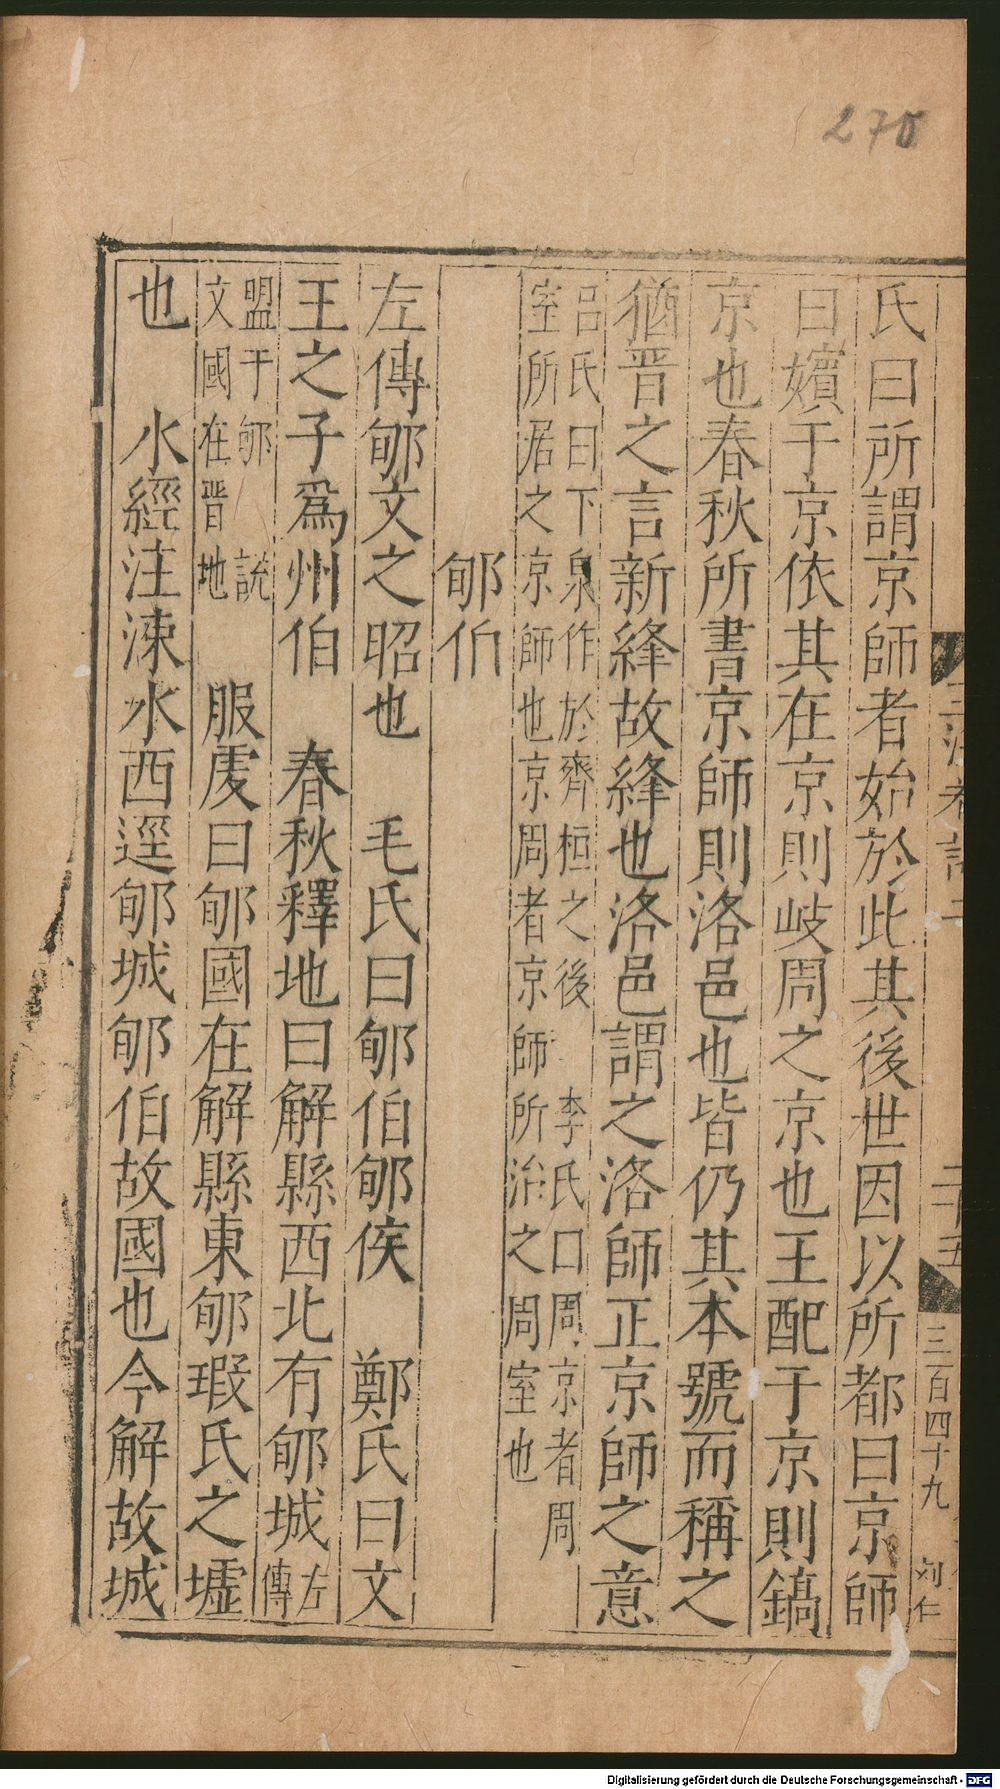 270
氏曰所謂京師者始於此其後世因以所都曰京師
曰嬪于京依其在京則岐周之京也王配于京則鎬
京也春秋所書京師則洛邑也皆仍其本號而稱之
猶晋之言新絳故絳也洛邑謂之洛師正京師之意
呂氏曰下泉作於齊桓之後 李氏曰周京者周
室所居之京師也京周者京師所治之周室也
郇伯
左傳郇文之昭也 毛氏曰郇伯郇侯 鄭氏曰文
王之子爲州伯 春秋釋地曰解縣西北有郇城左傳
盟于郇 說
文國在晋地 服虔曰郇國在解縣東郇瑕氏之墟
也 水經注涑水西逕郇城郇伯故國也今解故城
二十五
三百四十九
刘仁
Digitalisierung gefördert durch die Deutsche Forschungsgemeinschaft - DFG